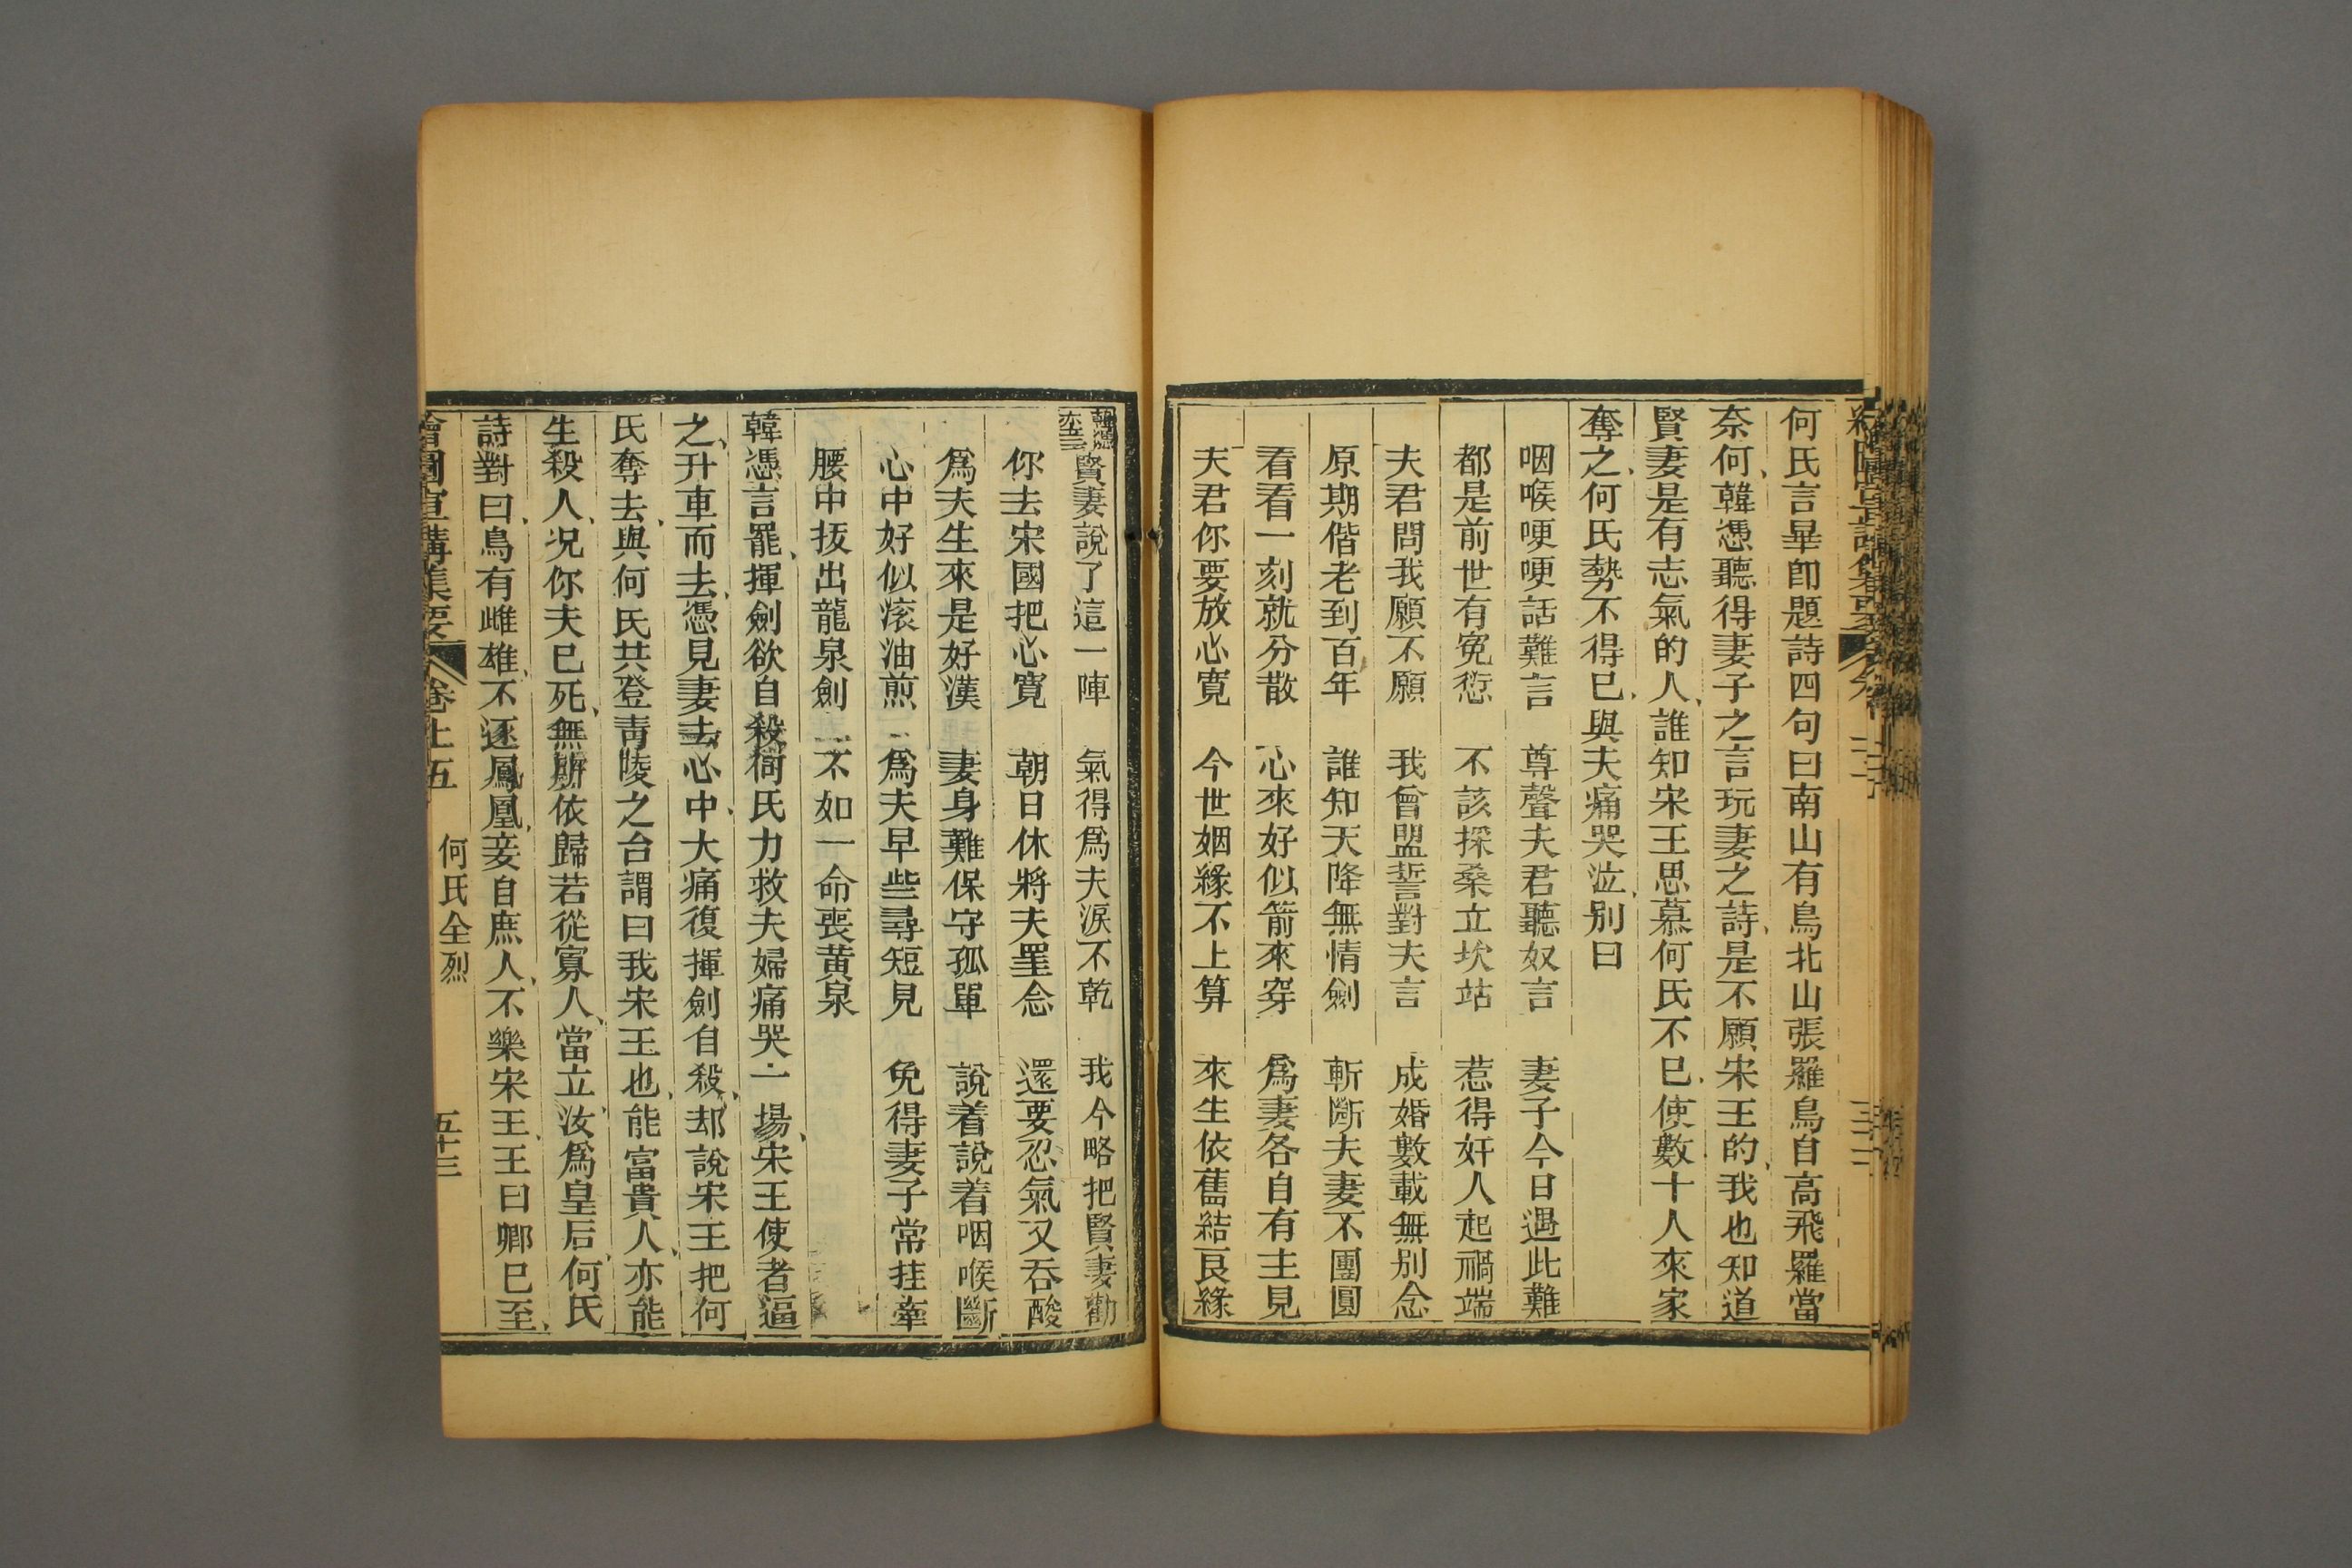 何氏言畢即題詩四句曰南山有鳥北山張羅鳥自高飛羅當
奈何、韓憑聽得妻子之言玩妻之詩、是不願宋王的、我也知道
賢妻是有志氣的人、誰知宋王思慕何氏不已、使數十人來家
奪之、何氏勢不得已、與夫痛哭泣、別曰
咽喉哽哽話難言 尊聲夫君聽奴言 妻子今日遇此難
都是前世有冤愆 不該採桑立坎站 惹得奸人起禍端
夫君問我願不願 我曾盟誓對夫言 成婚數載無別念
原期偕老到百年 誰知天降無情劍 斬斷夫妻不團圓
看看一刻就分散 心來好似箭來穿 為妻各自有主見
夫君你要放心寬 今世姻緣不上算 來生依舊結良緣
韓憑亦云 賢妻說了這一陣 氣得為夫淚不乾 我今略把賢妻勸
你去宋國把心寬 朝日休將夫罣念 還要忍氣又吞酸
為夫生來是好漢 妻身難保守孤單 說着說着咽喉斷
心中好似滚油煎 為夫早些尋短見 免得妻子常挂牽
腰中拔出龍泉劍 不如一命喪黃泉
韓憑言罷、揮劍欲自殺、何氏力救夫婦痛哭一場、宋王使者逼
之、升車而去、憑見妻去心中、大痛復揮劍自殺、却說宋王把何
氏奪去、與何氏共登青陵之台謂曰我宋王也、能富貴人、亦能
生殺人、况你夫已死、無所依歸若從寡人、當立汝為皇后、何氏
詩對曰、鳥有雌雄、不逐鳳凰、妾自庶人、不樂宋王、王曰卿已至、
繪圖宣講集要 卷上五 何氏全烈 五十三